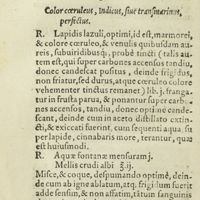 Color cœruleus, Indicus, siue transmarinus,
perfectus.
R. Lapidis lazuli, optimi, id est, marmorei,
& colore cœruleo, & venulis quibusdam au
reis, subuiridibusq́;, probè tincti (talis au
tem est, qui super carbones accensos tandiu,
donec candescat positus, deinde frigidus,
non friatur, sed durus, atque cœruleo colore
vehementer tinctus remanet) lib. j. frangá-
tur in frusta parua, & ponantur super carbo
nes accensos, tandiu, donec optimè cande-
scant, deinde cum in aceto albo extinctæ
fuerint, & exiccati fuerint, cum sequenti aqua, su
per lapide, cinnabaris more, terantur, quæ
est huiusmodi.
R. Aquæ fontanæ mensuram j.
Mellis crudi albi ℥.ij.
Misce, & coque, despumando optimè, dein-
de cum ab igne ablatum, atq́; frigidum fuerit
adde sensim, & non affatim, tātum sanguinis